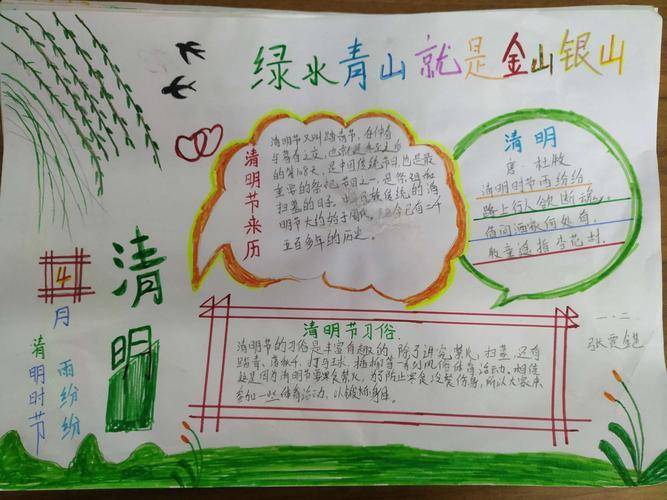 绿水青山就是金山银山
清明节来历
清明节又叫踏青节,在仲春
与暮春之交,也就是冬至后
的第108天,是中国传统节日,也是最
重要的祭祀节日之一,是祭祖和
扫墓的日子。中华民族传统的清
明节大约始于周代,距今已有二千
五百多年的历史。
清明
唐·杜牧
清明时节雨纷纷,
路上行人欲断魂。
借问酒家何处有,
牧童遥指杏花村。
4
月
清明
清明时节
雨纷纷
清明节习俗
清明节的习俗是丰富有趣的,除了讲究禁火、扫墓,还有
踏青、荡秋千、打马球、插柳等一系列风俗体育活动。相传
这是因为清明节要寒食禁火,为了防止寒食冷餐伤身,所以大家来
参加一些体育活动,以锻炼身体。
一.二
张